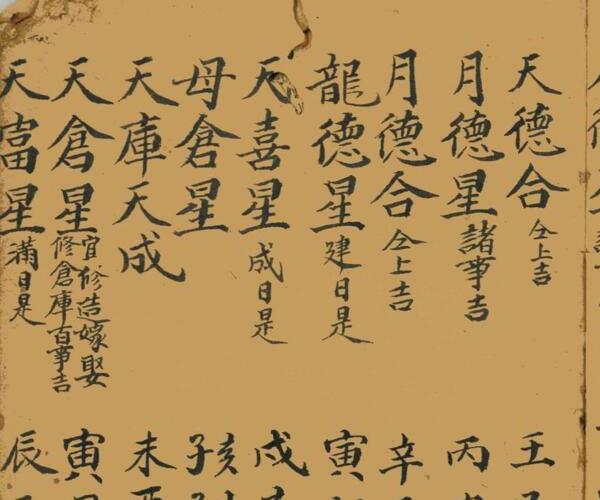 天德合 仝上吉 壬
月德星 諸事吉 丙
月德合 仝上吉 辛
龍德星 建日是 寅
天喜星 成日是 戌
母倉星 亥子
天庫天成 未
天倉星 宜修造嫁娶修倉庫百事吉 寅
天富星 滿日是 辰